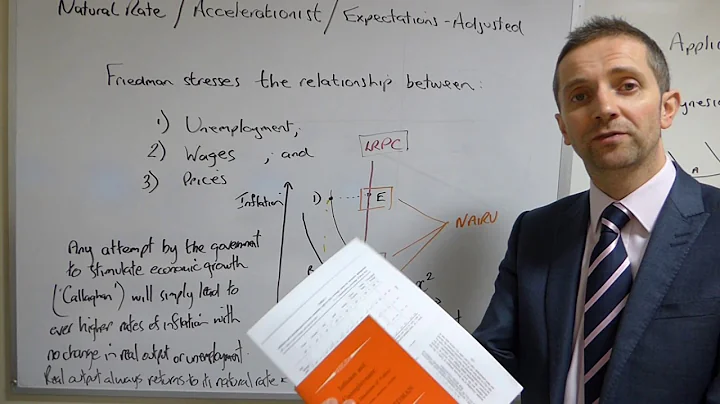 Natural Rate / Accelerationist / Expectations-Adjusted
Friedman stresses the relationship between:
1) Unemployment,
2) Wages ; and
3) Prices
LRPC
Inflation
1)
E
NAIRU
Any attempt by the government
to stimulate economic growth
('Callaghan') will simply lead to
ever higher rates of inflation with
no change in real output or unemployment.
Real output always returns to its natural rate
Applic
nesia
A